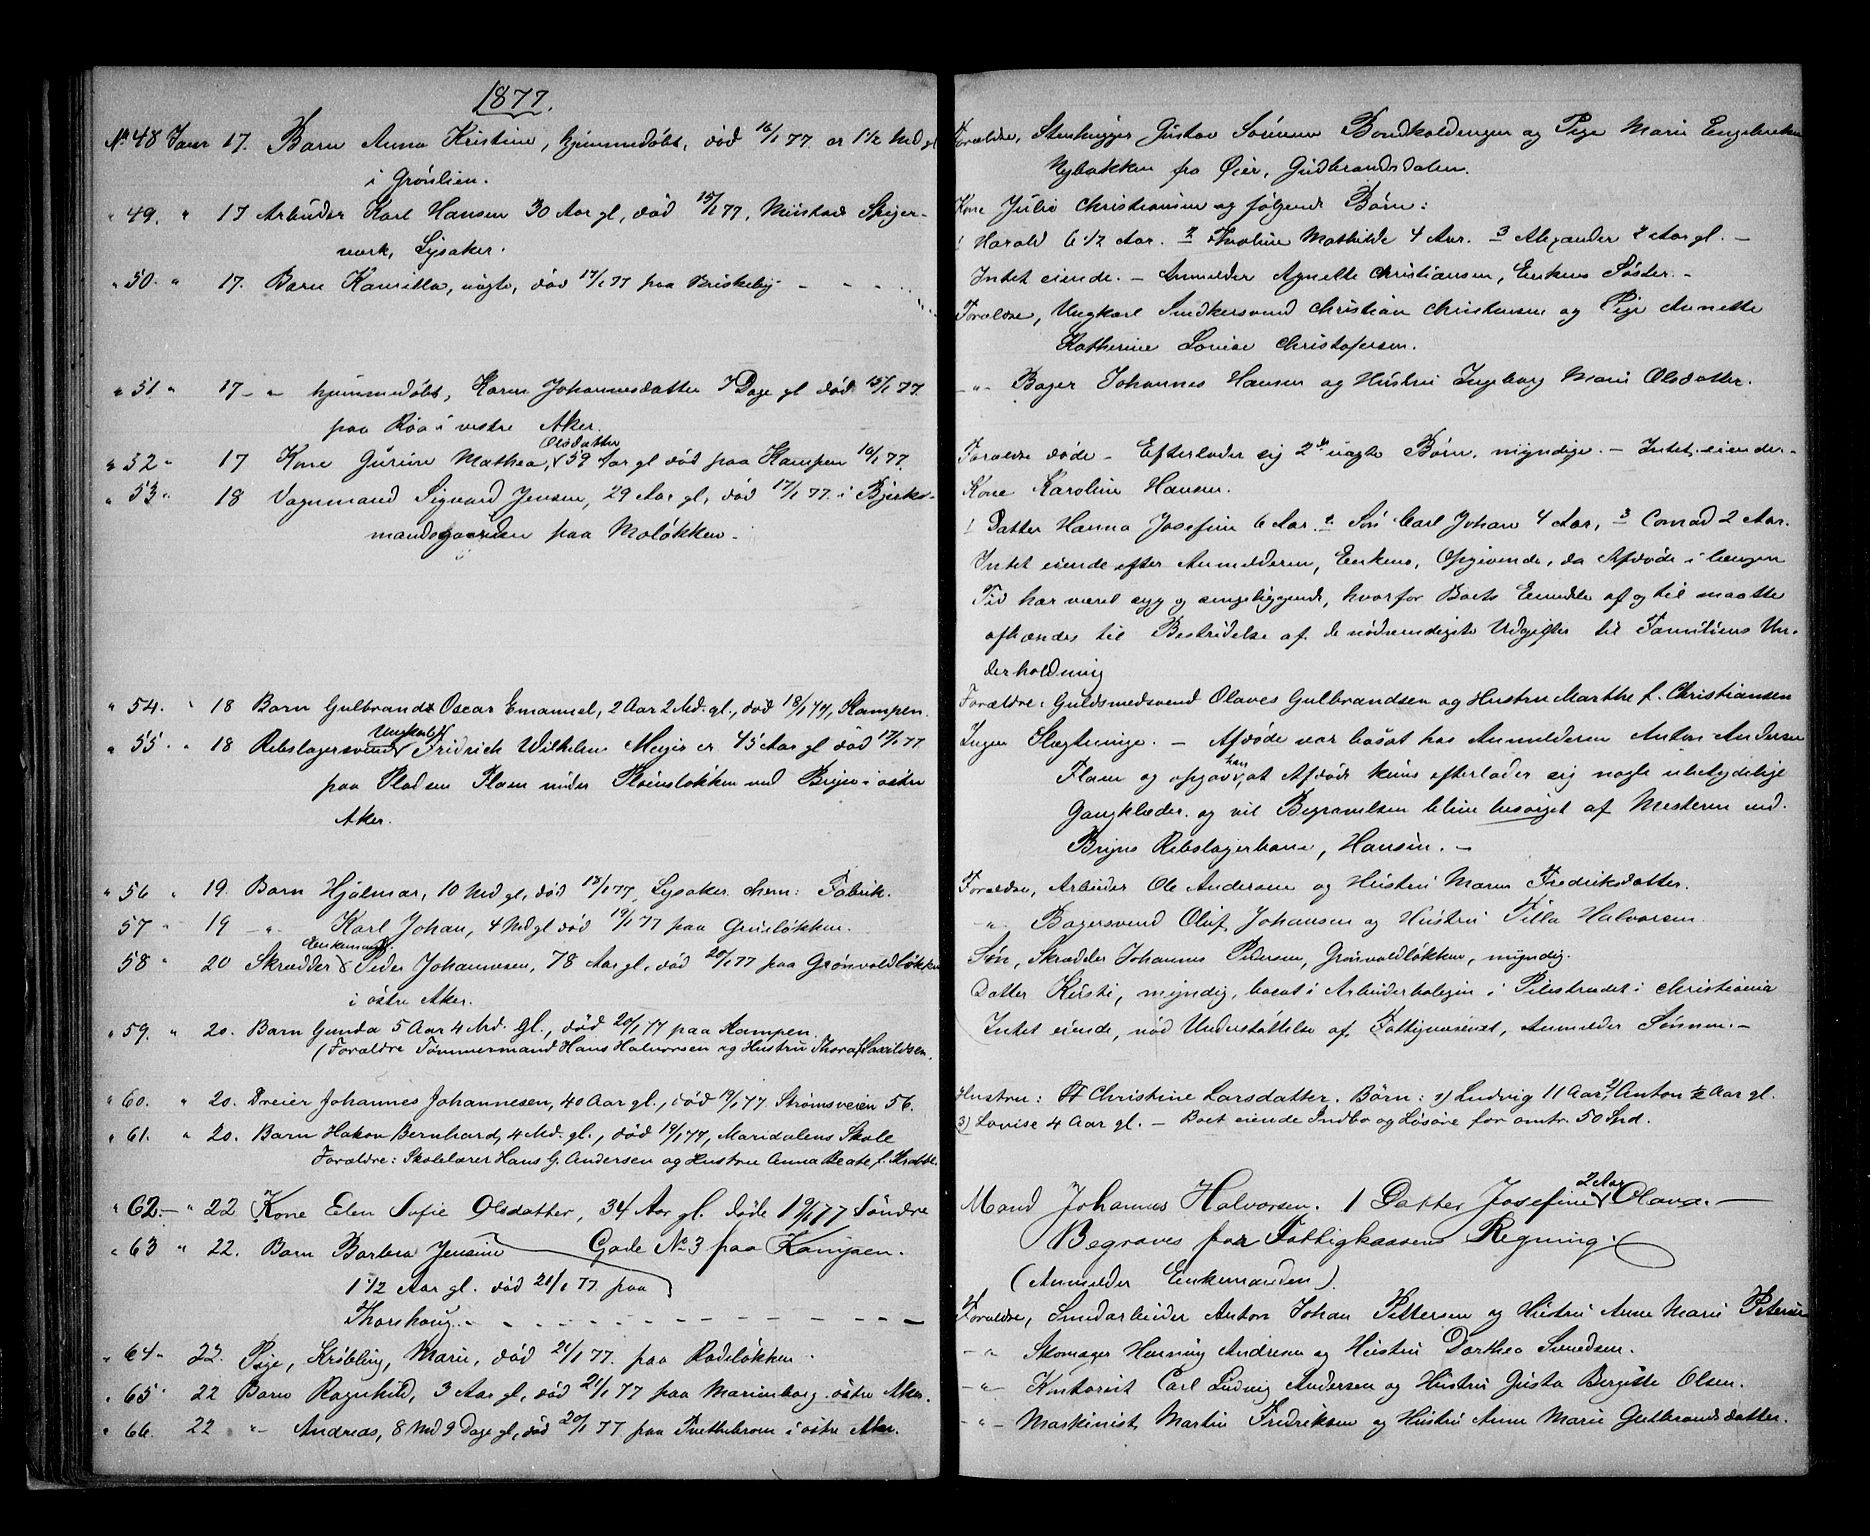 1877.
No 48 Janr 17. Barn Anna Kristine, hjemmedøbt, død 16/1 77 er 1 1/2 Md gl
i Grønlien.
" 49. " 17 Arbeider Karl Hansen 30 Aar gl, død 15/1 77, Mustad Spiger-
verk, Lysaker.
" 50. " 17. Barn Kamilla, uægte, død 17/1 77 paa Briskeby
" 51 " 17 - " hjemmedøbt, Karen Johannesdatter 7 Dage gl død 15/1 77.
paa Røa i vestre Aker.
Olsdatter
" 52 " 17 Kone Gurine Mathea, 59 Aar gl død paa Kampen 16/1 77.
" 53 " 18 Vognmand Sigvard Jensen, 29 Aar gl, død 17/1 77. i Bjerke-
mandsgaarden paa Moløkken.
" 54. " 18 Barn Gulbrand Oscar Emanuel, 2 Aar 2 Md. gl., død 18/1 77, Kampen.
Ungkarl
" 55. " 18 Rebslagersvend Fridrich Wilhelm Meyer er 45 Aar gl død 17/1 77
paa Pladsen Flam under Pleiensløkken ved Bryn i østre
Aker.
" 56 " 19. Barn Hjalmar, 10 Md gl, død 18/1 77, Lysaker chem: Fabrik.
57 " 19 - " - Karl Johan, 4 Md gl død 19/1 77 paa Grusløkken.
Enkemand
58 " 20 Skrædder Peder Johannesen, 78 Aar gl, død 20/1 77 paa Grønvoldløkken
i østre Aker.
" 59. " 20. Barn Gunda 5 Aar 4 Md. Gl., død 20/1 77 paa Kampen.
(Forældre Tømmermand Hans Halvorsen og Hustru Thora f. Saxildsen.
" 60. " 20. Dreier Johannes Johannesen, 40 Aar gl., død 19/1 77. Strømsveien 56.
" 61. " 20. Barn Hakon Bernhard, 4 Md. gl., død 19/1 77, Maridalens Skole
Forældre: Skolelærer Hans G. Andersen og Hustru Anna Beate f. Krabbe.
" 62 - " 22 Kone Elen Sofie Olsdatter, 34 Aar gl. døde 19/1 77 Søndre
Gade No 3 paa Kampen.
" 63 " 22. Barn Barbra Jensine
1 1/2 Aar gl. død 21/1 77 paa
Thorshaug
" 64 " 22. Pige, Krøbling, Marie, død 21/1 77. paa Rodeløkken.
" 65 " 22 Barn Ragnhild, 3 Aar gl, død 21/1 77 paa Marienborg østre Aker.
" 66. 22 " Andreas, 8 Md 9 Dage gl, død 20/1 77 paa Tvettebroen i østre Aker.
Forældre, Stenhugger Gustav Bondkoldengen og Pige Marie Engebretsen
Nybakken fra Øier, Gudbrandsdalen.
Kone Julie Christiansen og følgende Børn:
1 Harald 6 1/2 Aar. 2 Mathilde 4 Aar. 3 Alexander 2 Aar gl. -
Intet eiende. - Anmelder Agnette Christiansen, Enkens Søster. -
Forældre, Ungkarl Snedkersvend Christian Christensen og Pige Annette
Katherine Lovise Christofersen.
- " - Bager Johannes Hansen og Hustru Ingeborg Marie Olsdatter.
Forældre døde - Efterlader sig 2de uægte Børn, myndige. - Intet eiende. -
Kone Karoline Hansen.
1 Datter Hanna Josefine 6 Aar. 2 Søn Carl Johan 4 Aar, 3 Conrad 2 Aar.
Intet eiende efter Anmelderen, Enkens, Opgivende, da Afdøde i længere
Tid har været syg og sengeliggende, hvorfor Boets Eiendele af og til maatte
afhændes til Bestridelse af de nødvendigste Udgifter til Familiens Un-
derholdning
Forældre: Guldsmedsvend Olaves Gulbrandsen og Hustru Marthe f. Christiansen
Ingen Slægtninge. - Afdøde var bosat hos Anmelderen Anton Andersen
Flam og opgav han, at Afdøde kuns efterlader sig nogle ubetydelige
Gangklæder. og vil Begravelsen blive besørget af Mesteren ved
Bryns Rebslagerbane, Hansen. -
Forældre, Arbeider Ole Andersen og Hustru Maren Fredriksdatter.
- " - Bagersvend Oluf Johansen og Hustru Pilla Halvorsen
Søn, Skrædder Johannes Pedersen, Grønvoldløkken, myndig.
Datter Kirsti, myndig, bosat i Arbeiderboligen i Pilestrædet i Christiania
Intet eiende, nød Understøttelse af Fattigvæsenet, Anmelder Sønnen. -
Hustru: Christine Larsdatter. Børn: 1) Ludvig 11 Aar 2) Anton 1/2 Aar gl.
3) Lovise 4 Aar gl. - Boet eiende Indbo og Løsøre for omtr. 50 Spd.
2 Aar
Mand Johannes Halvorsen. 1 Datter Josefine Olava. -
Begraves paa Fattigkassens Regning.
(Anmelder Enkemanden).
Forældre, Smedarbeider Anton Johan Pettersen og Hustru Anne Marie Petersen
- " Skomager Henning Andresen og Hustru Dorthea Svendsen.
- " - Kontorist Carl Ludvig Andersen og Hustru Gusta Birgitte Olsen.
- " - Maskinist Martin Fredriksen og Hustru Anne Marie Gulbrandsdatter.